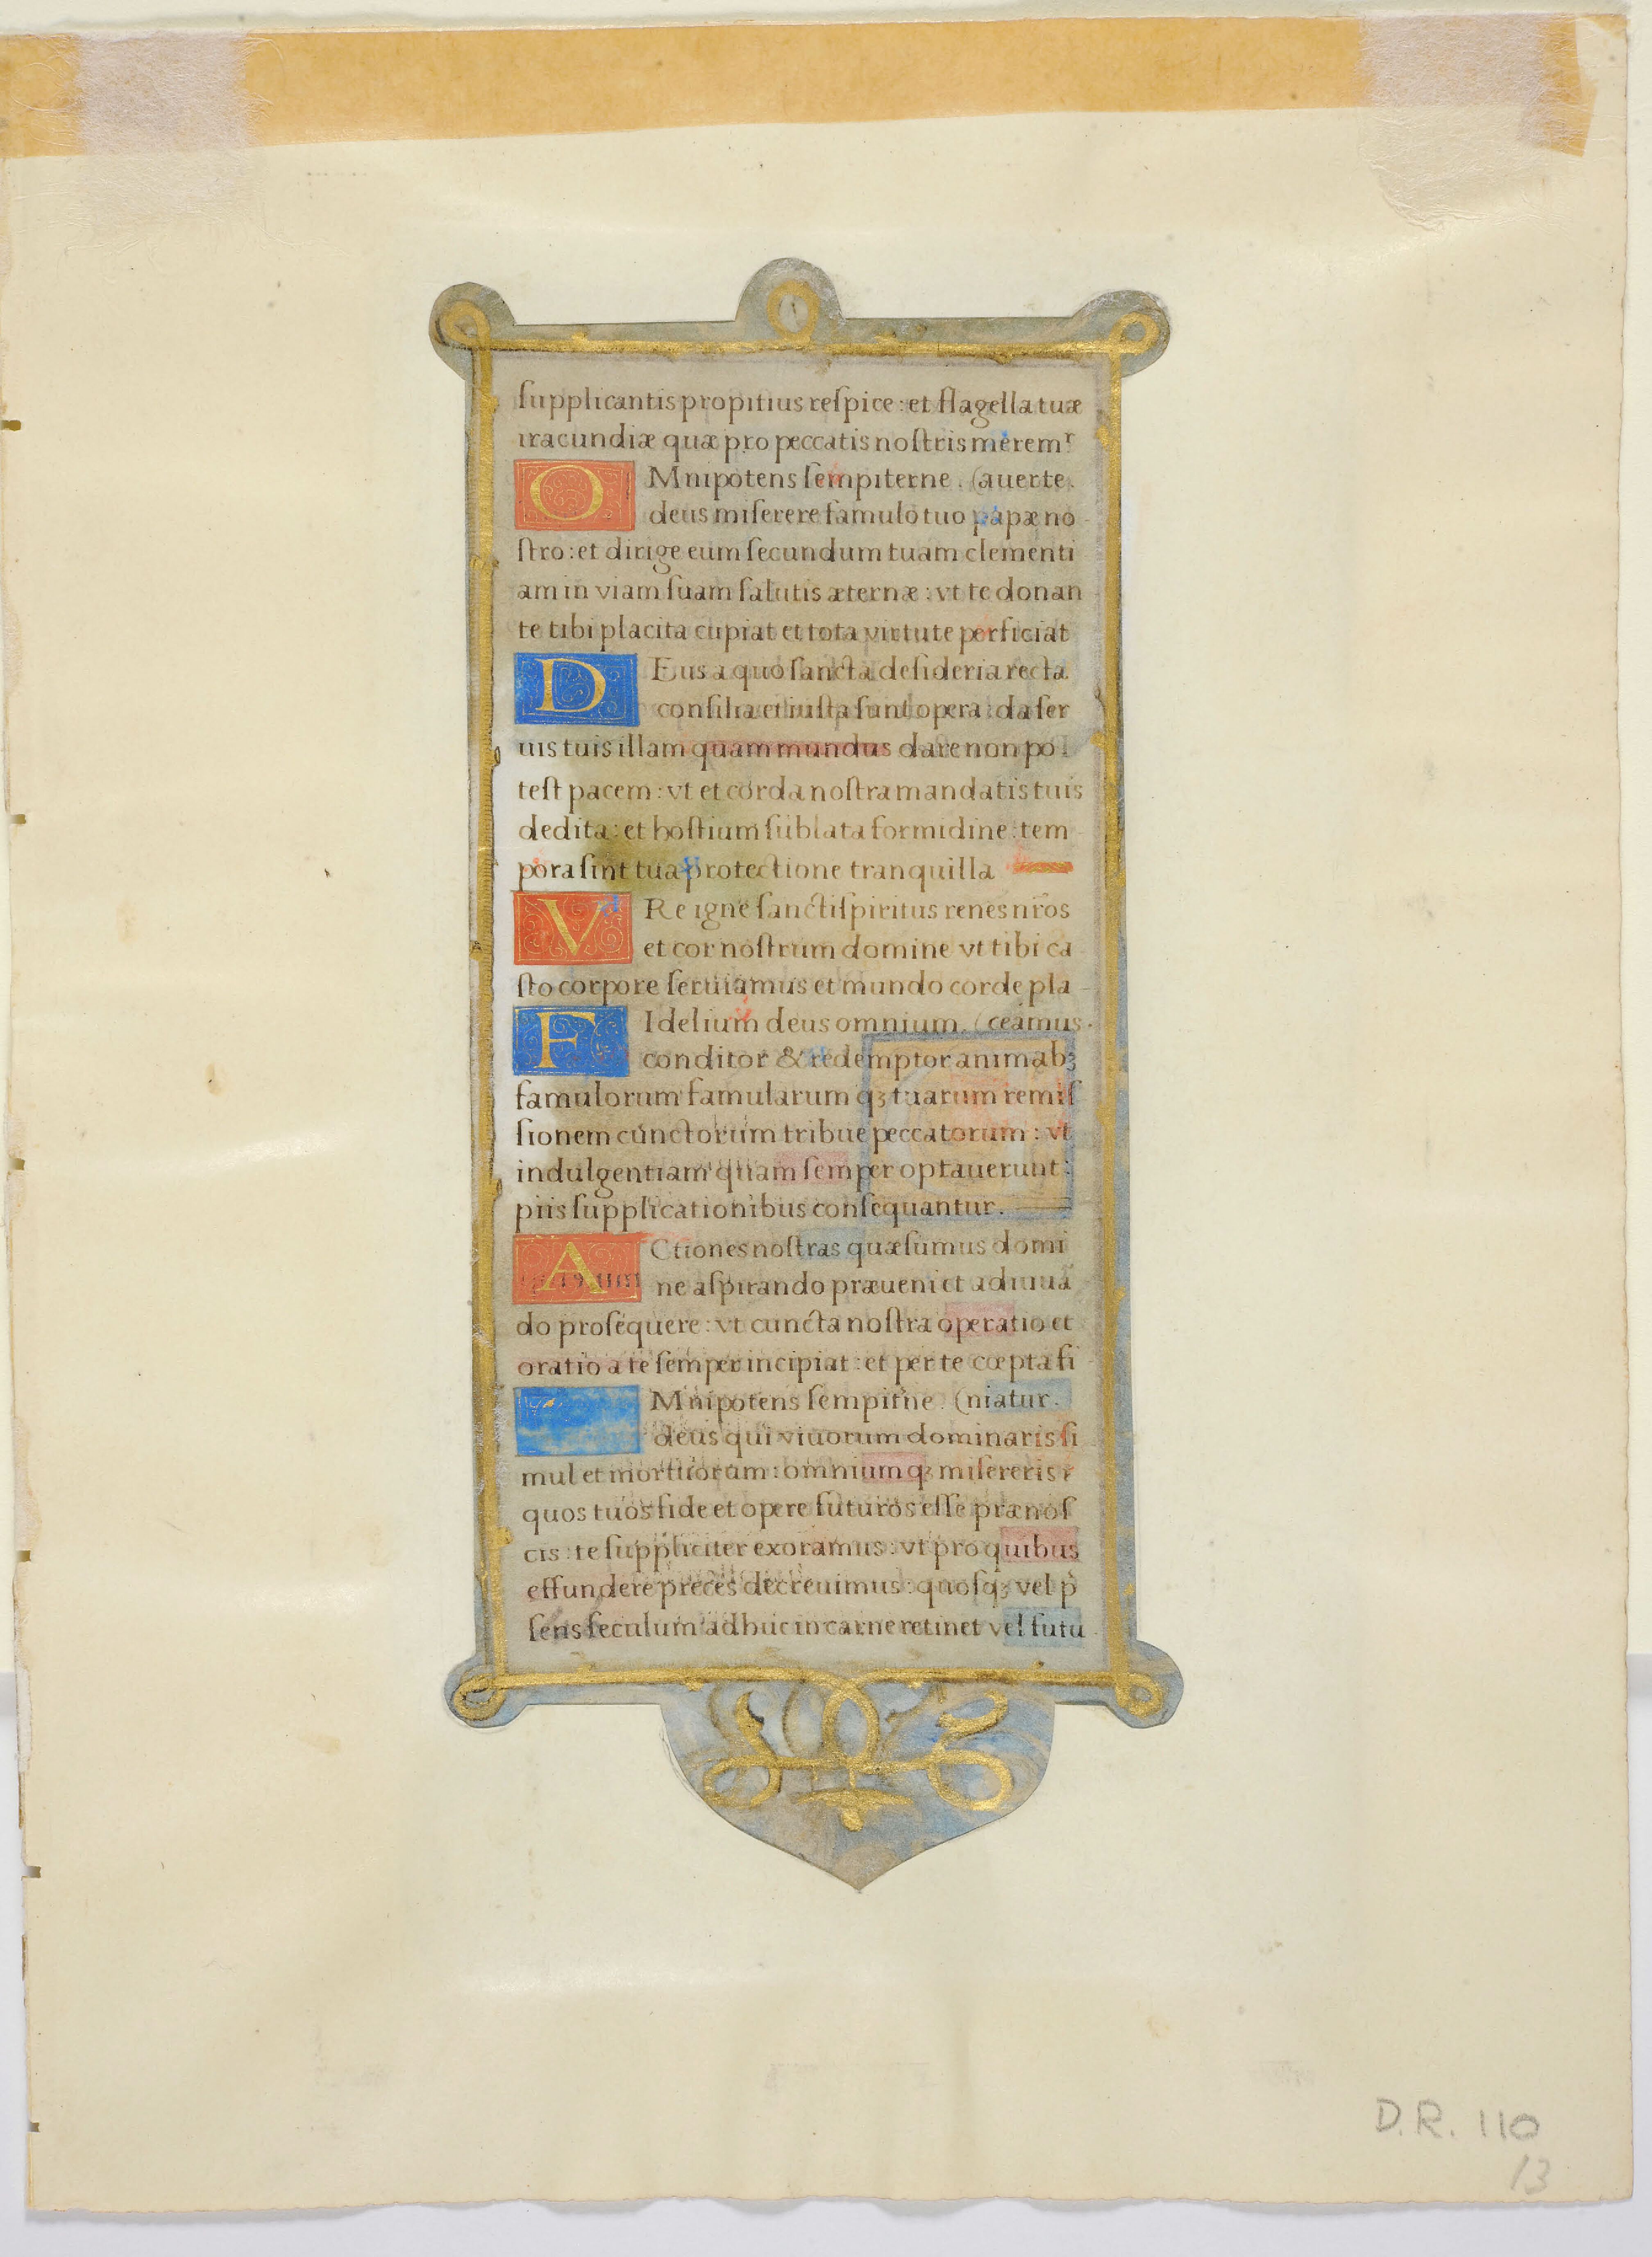 ſupplicantis propitius reſpice : et flagella tuæ
iracundiæ quæ pro peccatis noſtris meremʳ
OMnipotens ſempiterne . (auerte .
deus miſerere famulo tuo papæ no
ſtro : et dirige eum ſecundum tuam clementi
am in viam ſuam ſalutis æternæ : vt te donan
te tibi placita cupiat et tota virtute perficiat
DEus a quo ſancta deſideria recta
conſilia et iuſta ſunt opera : da ſer
uis tuis illam quam mundus dare non po
teſt pacem : vt et corda noſtra mandatis tuis
dedita : et hoſtium ſublata formidine : tem
pora ſint tua protectione tranquilla
VRe igne ſancti ſpiritus renes nr̄os
et cor noſtrum domine vt tibi ca
ſto corpore ſeruiamus et mundo corde pla
FIdelium deus omnium . (ceamus .
conditor & redemptor animabꝫ
famulorum famularum qꝫ tuarum remiſ
ſionem cunctorum tribue peccatorum : vt
indulgentiam quam ſemper optauerunt :
piis ſupplicationibus conſequantur .
ACtiones noſtras quæſumus domi
ne aſpirando præueni et adiuuā
do proſequere : vt cuncta noſtra operatio et
oratio a te ſemper incipiat : et per te cœpta fi
Mnipotens ſempit̄ne . (niatur .
deus qui viuorum dominaris ſi
mul et mortuorum : omnium qꝫ miſereris
quos tuos fide et opere futuros eſſe prænoſ
cis : te ſuppliciter exoramus : vt pro quibus
effundere preces decreuimus : quoſqꝫ vel p̄
ſens ſeculum adhuc in carne retinet vel futu
D.R. 110
13